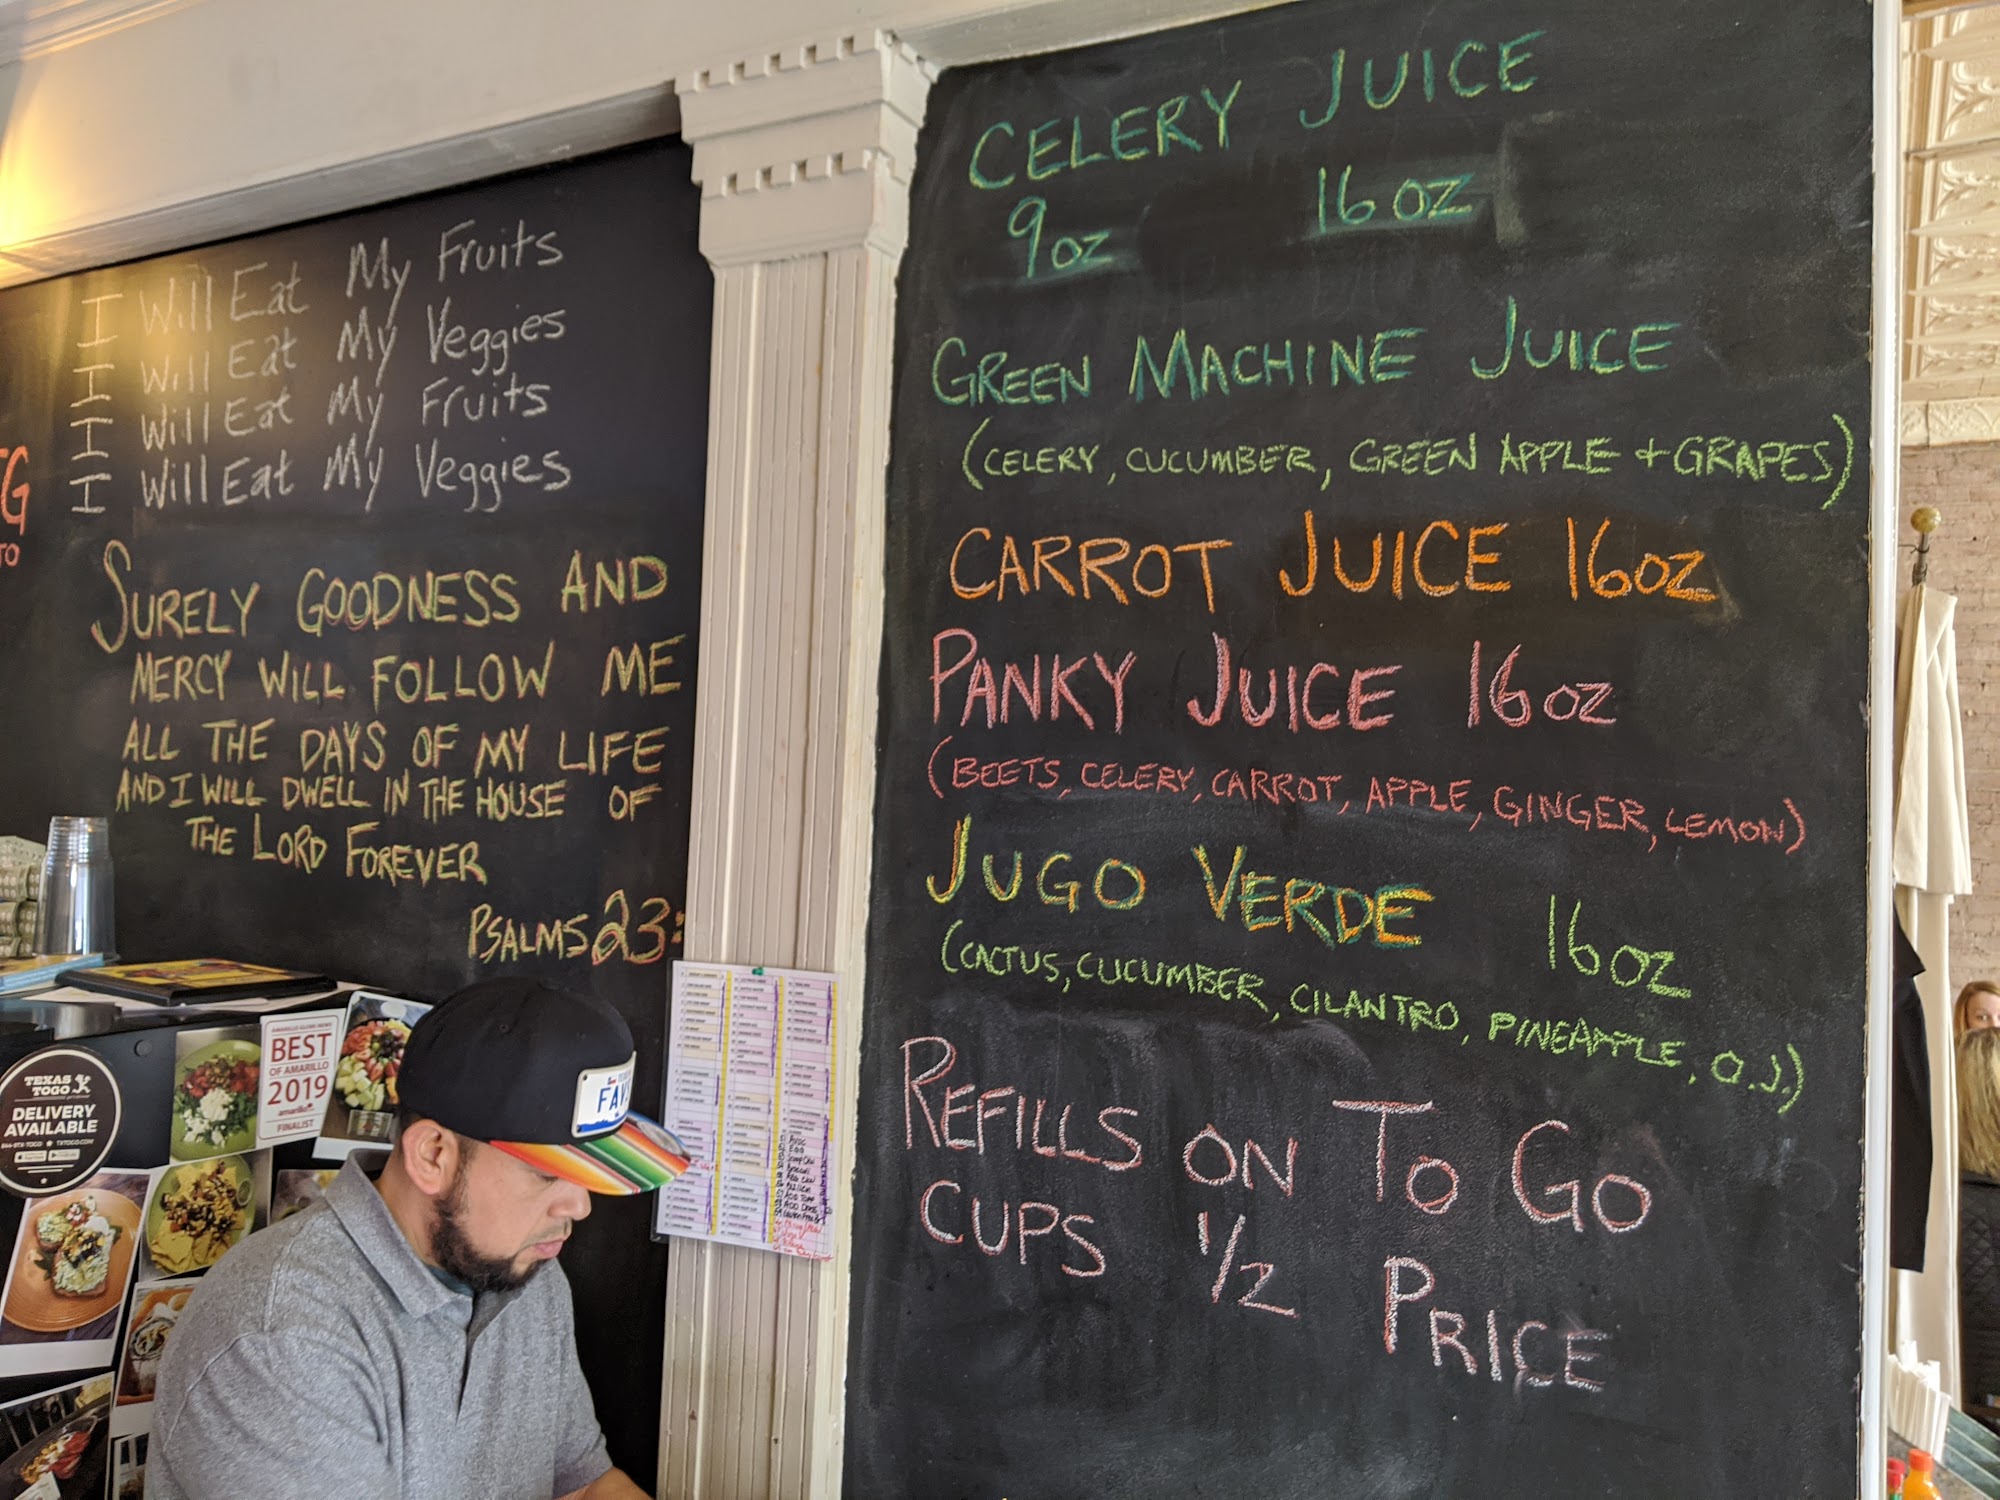 I Will Eat My Fruits
I Will Eat My Veggies
I Will Eat My Fruits
I Will Eat My Veggies
SURELY GOODNESS AND
MERCY WILL FOLLOW ME
ALL THE DAYS OF MY LIFE
AND I WILL DWELL IN THE HOUSE OF
THE LORD FOREVER
PSALMS 23:
G
TO
CELERY JUICE
9 OZ 16 OZ
GREEN MACHINE JUICE
(CELERY, CUCUMBER, GREEN APPLE + GRAPES)
CARROT JUICE 16 OZ
PANKY JUICE 16 OZ
(BEETS, CELERY, CARROT, APPLE, GINGER, LEMON)
JUGO VERDE 16 OZ
(CACTUS, CUCUMBER, CILANTRO, PINEAPPLE, O.J.)
REFILLS ON TO GO
CUPS 1/2 PRICE
TEXAS
TOGO
DELIVERY
AVAILABLE
AMARILLO GLOBE-NEWS
BEST
OF AMARILLO
2019
amarillo
FINALIST
FAV